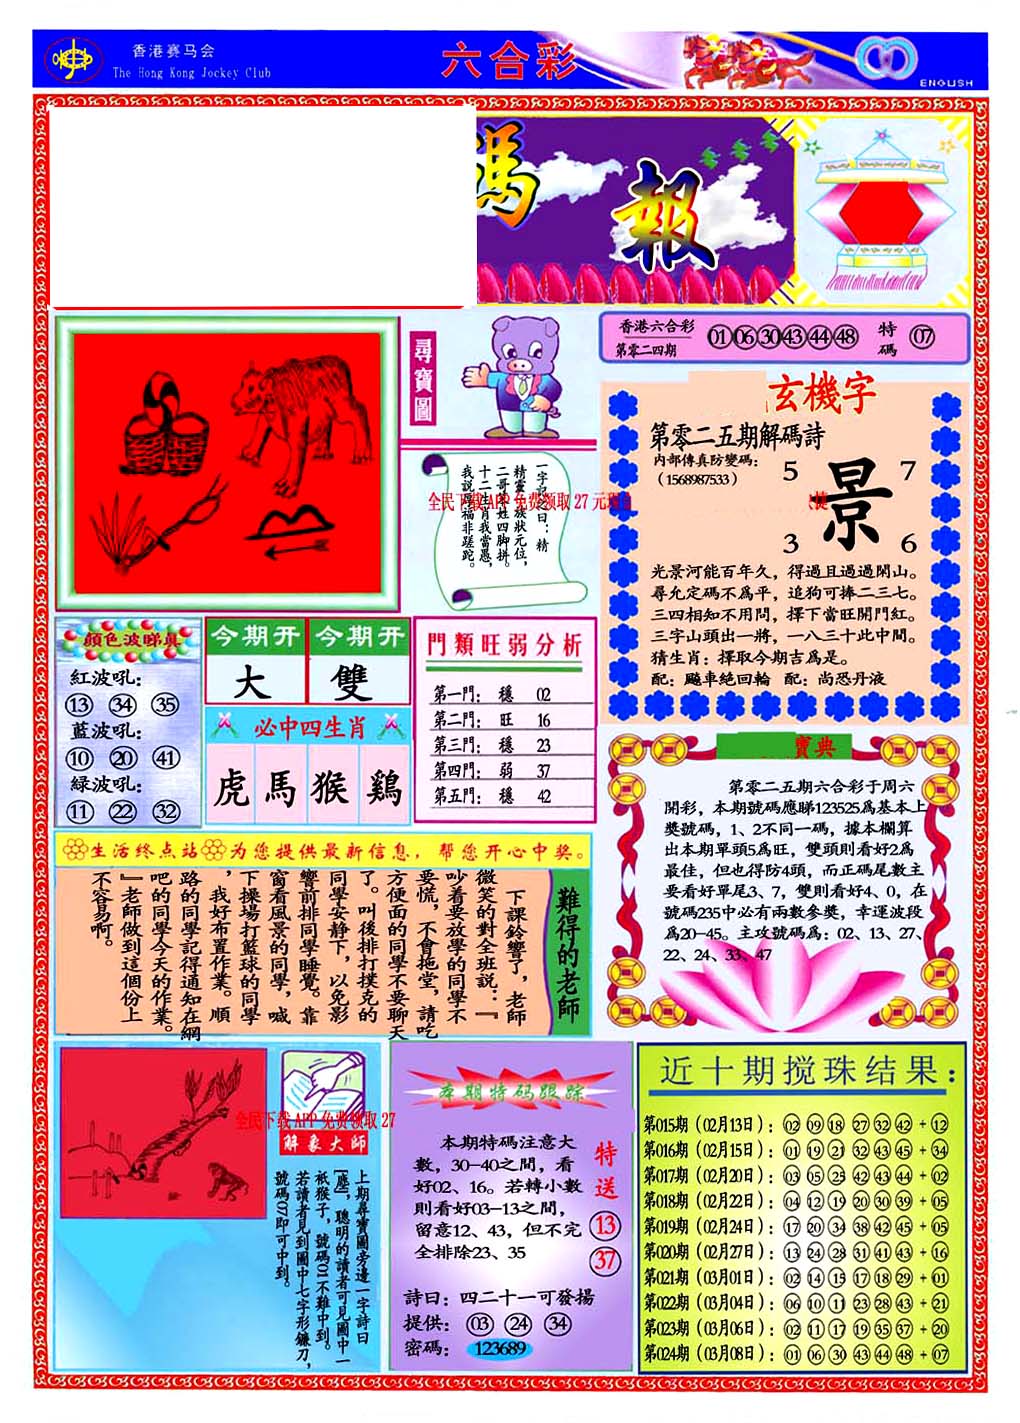 香港赛马会
The Hong Kong Jockey Club
六合彩
ENGLISH
碼報
尋寶圖
一字記之曰：精
精靈
族狀元位，
二哥
姓四脚拼。
十二生肖我當愚，
我説
福非蹉跎。
全民下载APP免费领取27元现金
香港六合彩
第零二四期
01 06 30 43 44 48
特碼 07
玄機字
第零二五期解碼詩
内部傳真防變碼：
（1568987533）
5 7
景
3 6
光景河能百年久，得過且過過関山。
尋允定碼不爲平，追狗可捧二三七。
三四相知不用問，擇下當旺開門紅。
三字山頭出一將，一八三十此中間。
猜生肖：擇取今期吉爲是。
配：飈車絶回輪 配：尚恐丹液
顔色波睇真
紅波吼：
13 34 35
藍波吼：
10 20 41
緑波吼：
11 22 32
今期开 今期开
大 雙
必中四生肖
虎 馬 猴 鷄
門類旺弱分析
第一門： 穩 02
第二門： 旺 16
第三門： 穩 23
第四門： 弱 37
第五門： 穩 42
寶典
第零二五期六合彩于周六
開彩，本期號碼應睇123525爲基本上
獎號碼，1、2不同一碼，據本欄算
出本期單頭5爲旺，雙頭則看好2爲
最佳，但也得防4頭，而正碼尾數主
要看好單尾3、7，雙則看好4、0，在
號碼235中必有兩數參獎，幸運波段
爲20-45。主攻號碼爲：02、13、27、
22、24、33、47
生活终点站 为您提供最新信息，帮您开心中奖。
難得的老師
下課鈴響了，老師
微笑的對全班説：『
吵着要放學的同學不
要慌，不會拖堂，請吃
方便面的同學不要聊天
了。叫後排打撲克的
同學安静下，以免影
響前排同學睡覺。靠
窗看風景的同學，喊
下操場打籃球的同學
，我好布置作業。順
路的同學記得通知在網
吧的同學今天的作業。
』老師做到這個份上
不容易啊。
全民下载APP免费领取27
解象大師
上期尋寶圖旁邊一字詩曰
『應』，聰明的讀者可見圖中一
祇猴子，號碼01不難中到。
若讀者見到圖中七字形鐮刀，
號碼07即可中到。
本期特码跟踪
本期特碼注意大
數，30-40之間，看
好02、16。若轉小數
則看好03-13之間，
留意12、43，但不完
全排除23、35
特送
13
37
詩曰：四二十一可發揚
提供： 03 24 34
密碼： 123689
近十期搅珠结果：
第015期（02月13日）：02 09 18 27 32 42 + 12
第016期（02月15日）：01 19 21 32 43 45 + 34
第017期（02月20日）：03 05 25 42 43 44 + 02
第018期（02月22日）：04 12 19 20 30 39 + 05
第019期（02月24日）：17 20 34 38 42 45 + 05
第020期（02月27日）：13 24 28 31 41 43 + 16
第021期（03月01日）：02 14 15 17 18 29 + 01
第022期（03月04日）：06 10 11 23 28 43 + 21
第023期（03月06日）：02 11 17 19 35 37 + 20
第024期（03月08日）：01 06 30 43 44 48 + 07